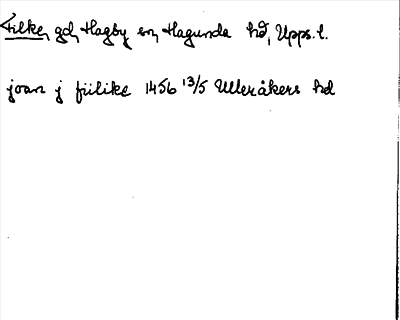 Filke, gd, Hagby sn, Hagunda hd, Upps. l.
joan j fiilike 1456 13/5 Ulleråkers hd